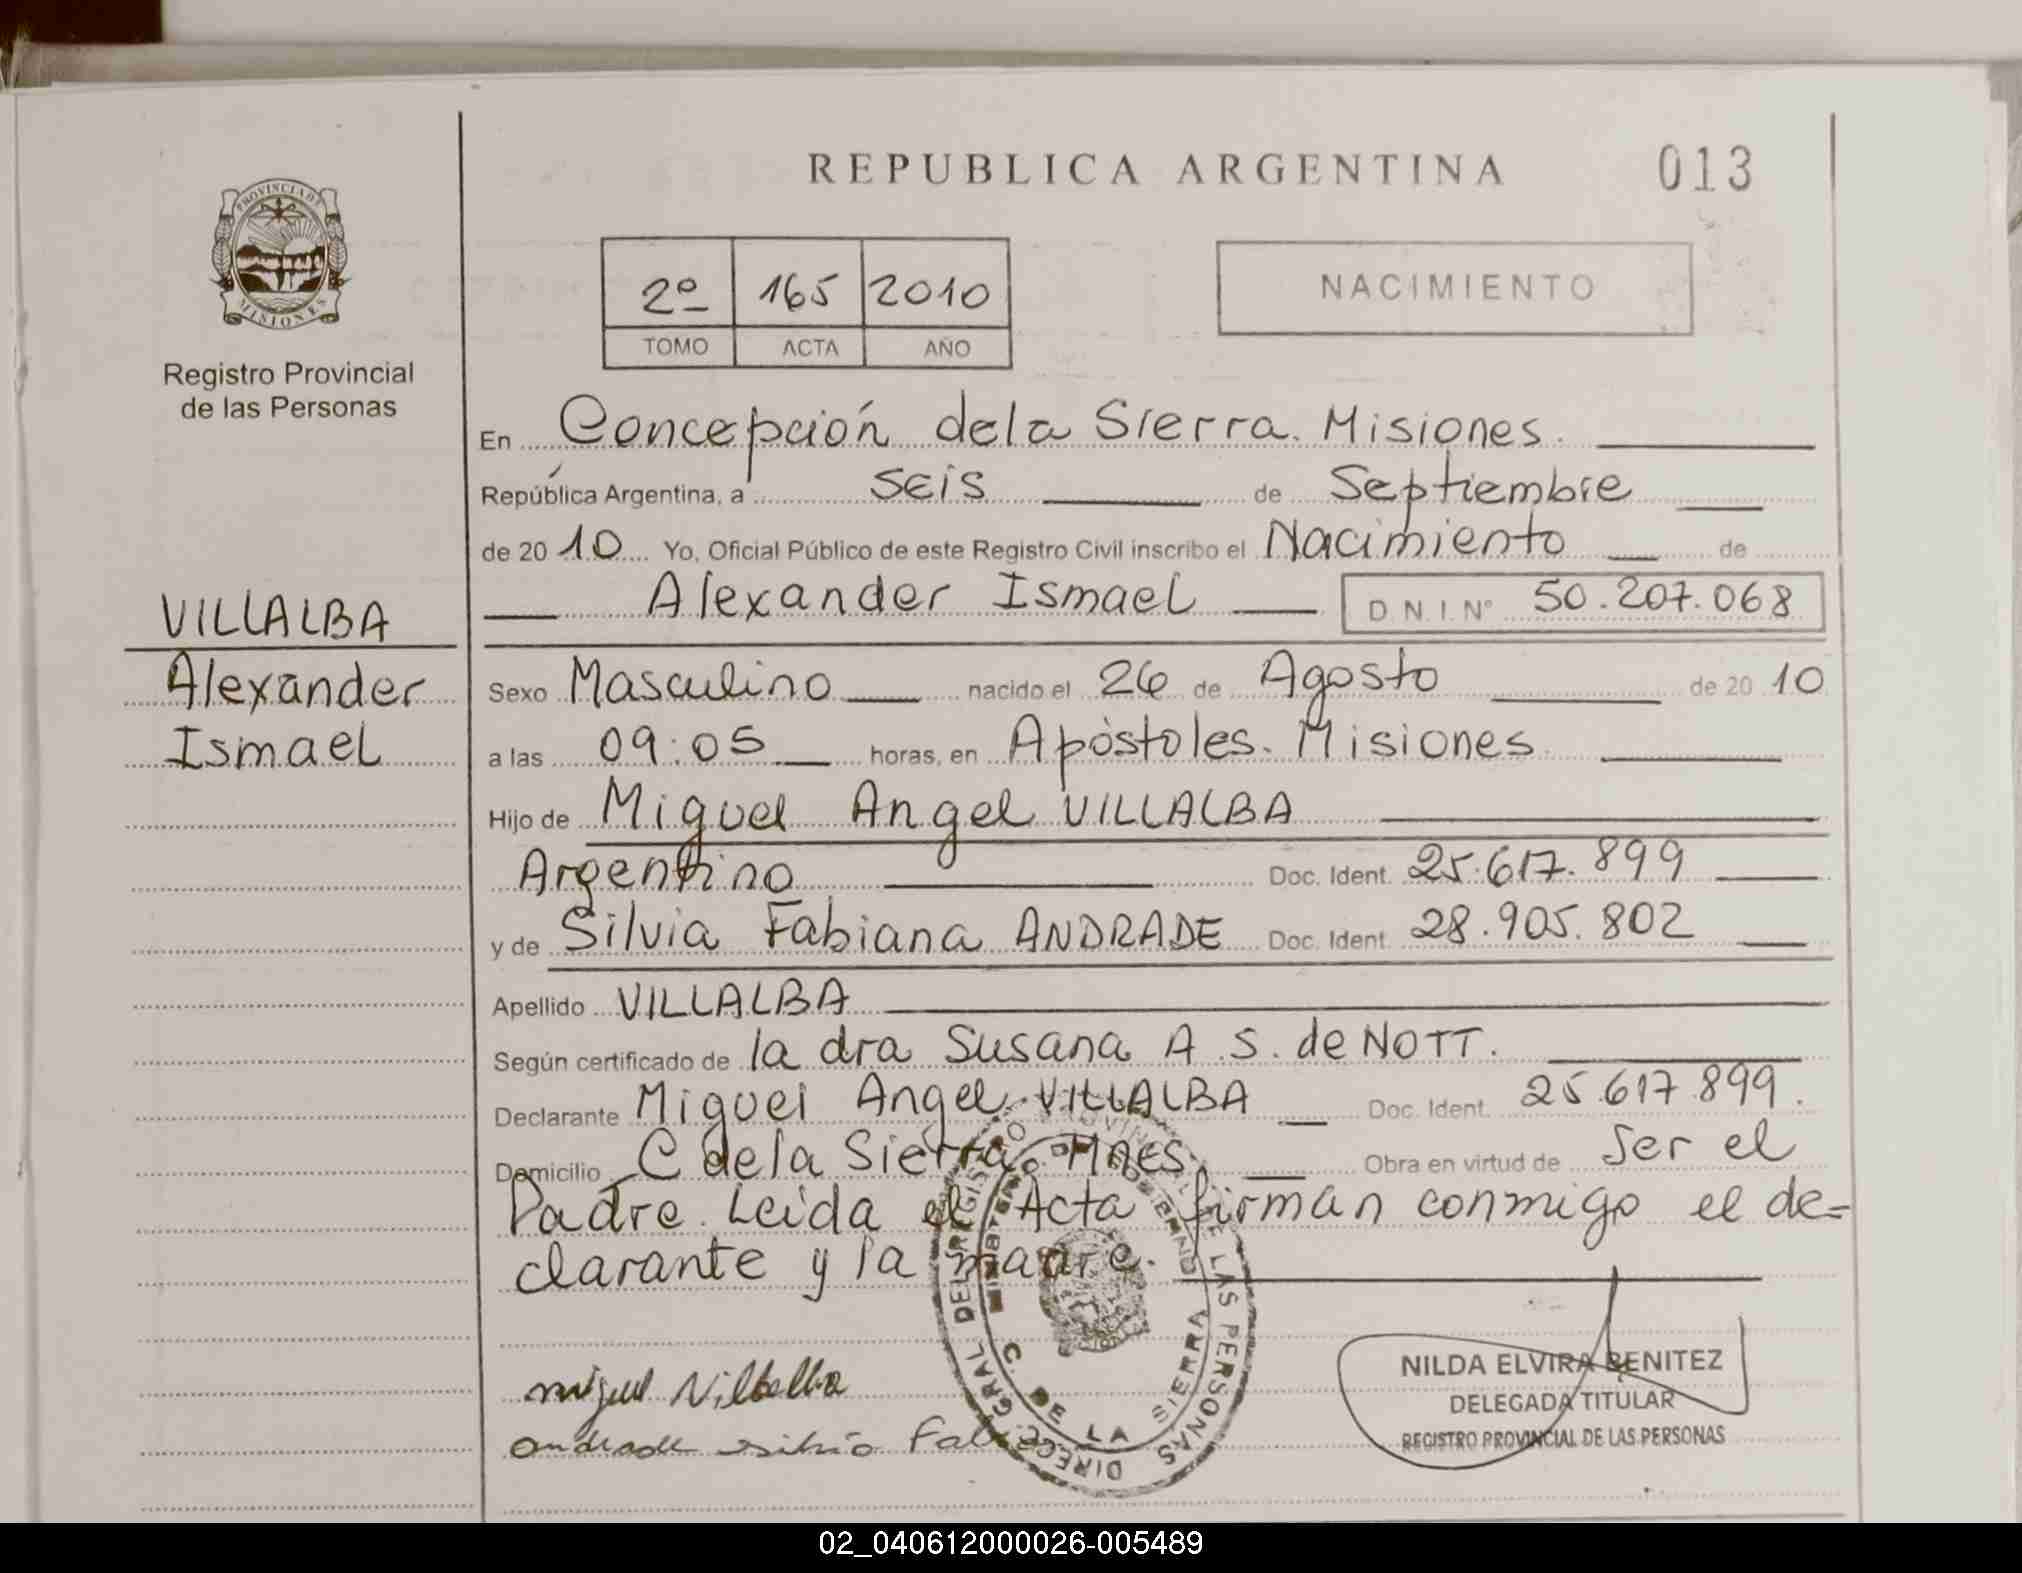 REPUBLICA ARGENTINA
013
PROVINCIA DE
MISIONES
Registro Provincial
de las Personas
2º 165 2010
TOMO ACTA AÑO
NACIMIENTO
En Concepción de la Sierra. Misiones.
República Argentina, a seis de Septiembre
de 2010 Yo, Oficial Público de este Registro Civil inscribo el Nacimiento de
Alexander Ismael D.N.I. Nº 50.207.068
VILLALBA
Alexander
Ismael
Sexo Masculino nacido el 26 de Agosto de 2010
a las 09:05 horas, en Apóstoles. Misiones
Hijo de Miguel Angel VILLALBA
Argentino Doc. Ident. 25.617.899
y de Silvia Fabiana ANDRADE Doc. Ident. 28.905.802
Apellido VILLALBA
Según certificado de la dra Susana A. S. de NOTT.
Declarante Miguel Angel VILLALBA Doc. Ident. 25.617.899.
Domicilio C de la Sierra. Mnes. Obra en virtud de Ser el
Padre. Leida el Acta firman conmigo el de=
clarante y la madre.
miguel Villalba
andrade silvia
DIRECC. GRAL DEL REGISTRO PROVINCIAL DE LAS PERSONAS
MINISTERIO DE GOBIERNO
C. DE LA SIERRA
NILDA ELVIRA BENITEZ
DELEGADA TITULAR
REGISTRO PROVINCIAL DE LAS PERSONAS
02_040612000026-005489